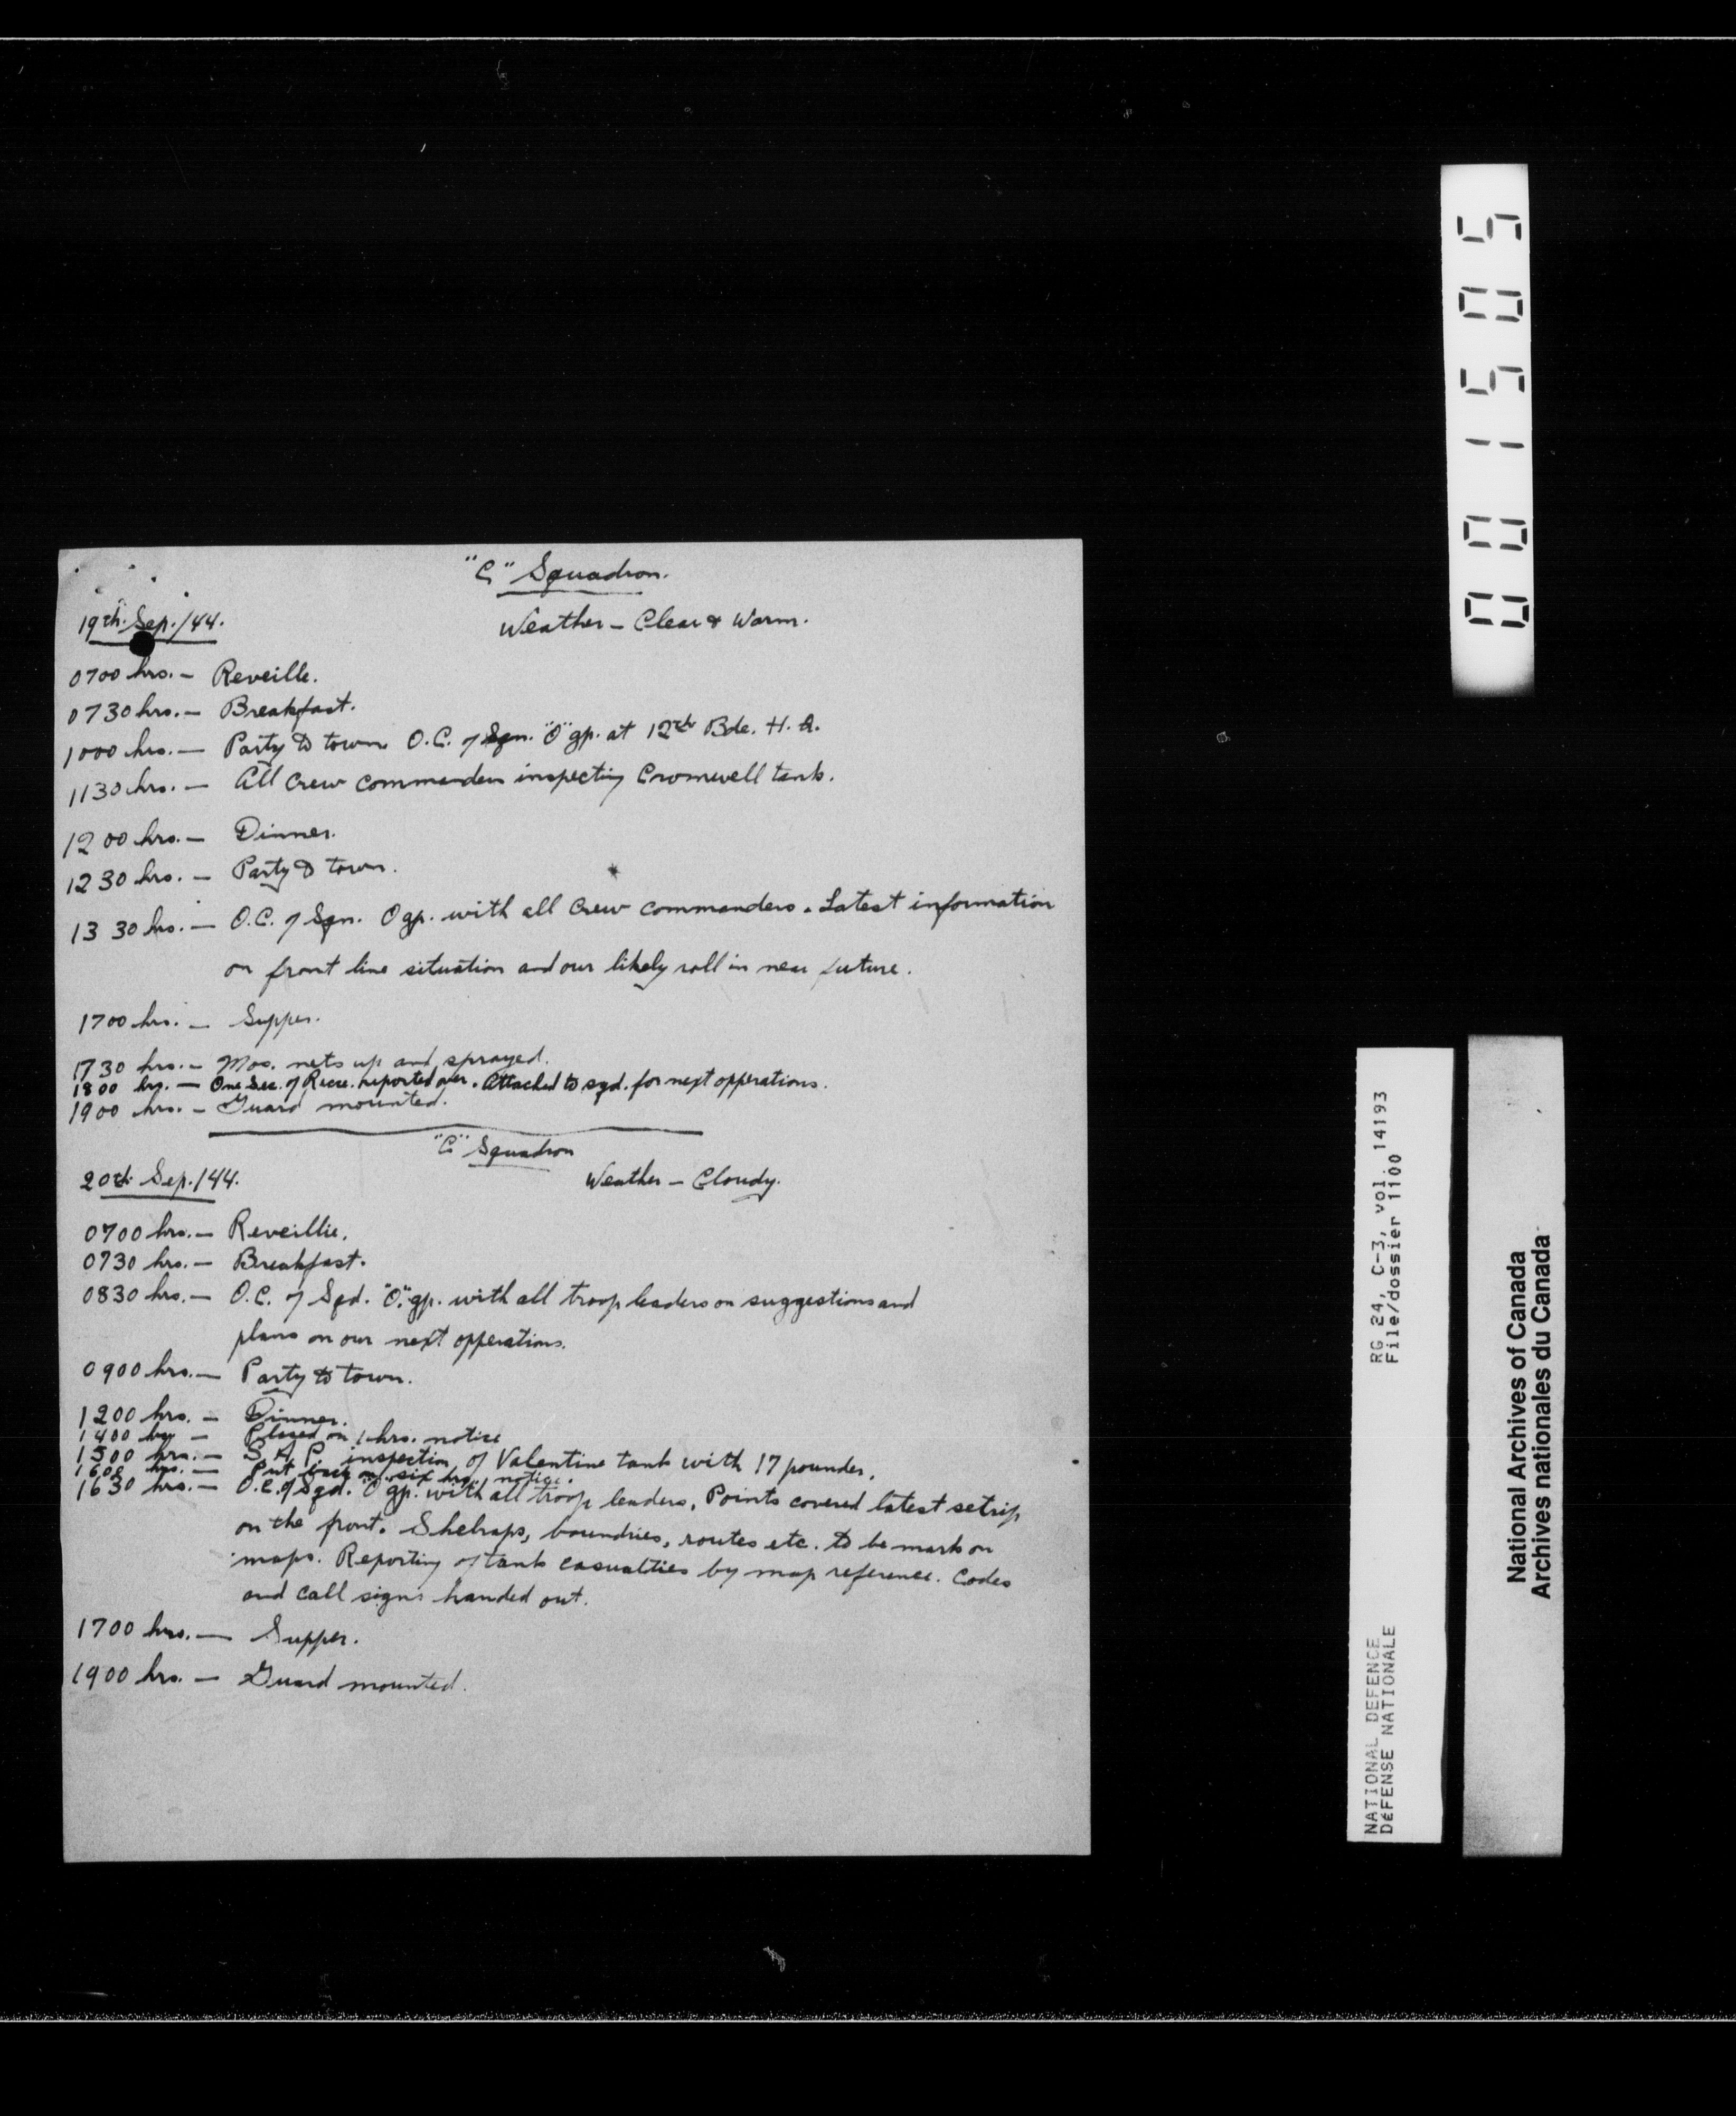 "C" Squadron.
19th. Sep./44.
Weather - Clear & Warm.
0700 hrs. - Reveille.
0730 hrs. - Breakfast.
1000 hrs. - Party to town. O.C. of Sqn. "O" gp. at 12th Bde. H.Q.
1130 hrs. - All Crew Commanders inspecting Cromwell tank.
1200 hrs. - Dinner.
1230 hrs. - Party to town.
1330 hrs. - O.C. of Sqn. O gp. with all Crew Commanders. Latest information
on front line situation and our likely roll in near future.
1700 hrs. - Supper.
1730 hrs. - Mos. nets up and sprayed.
1800 hrs. - One Sec. of Recce. reported over. Attached to sqd. for next opperations.
1900 hrs. - Guard mounted.
"C" Squadron
20th Sep./44.
Weather - Cloudy.
0700 hrs. - Reveillie.
0730 hrs. - Breakfast.
0830 hrs. - O.C. of Sqd. "O" gp. with all troop leaders on suggestions and
plans on our next opperations.
0900 hrs. - Party to town.
1200 hrs. - Dinner.
1400 hrs - Placed on 1 hrs. notice
1500 hrs. - S.A.P. inspection of Valentine tank with 17 pounder.
1600 hrs. - Put back on six hrs. notice.
1630 hrs. - O.C. of Sqd. "O" gp. with all troop leaders. Points covered latest
on the front. boundries, routes etc. to be mark on
maps. Reporting of tank casualties by map reference. Codes
and call signs handed out.
1700 hrs. - Supper.
1900 hrs. - Guard mounted.
001505
RG 24, C-3, vol. 14193
File/dossier 1100
NATIONAL DEFENCE
DÉFENSE NATIONALE
National Archives of Canada
Archives nationales du Canada